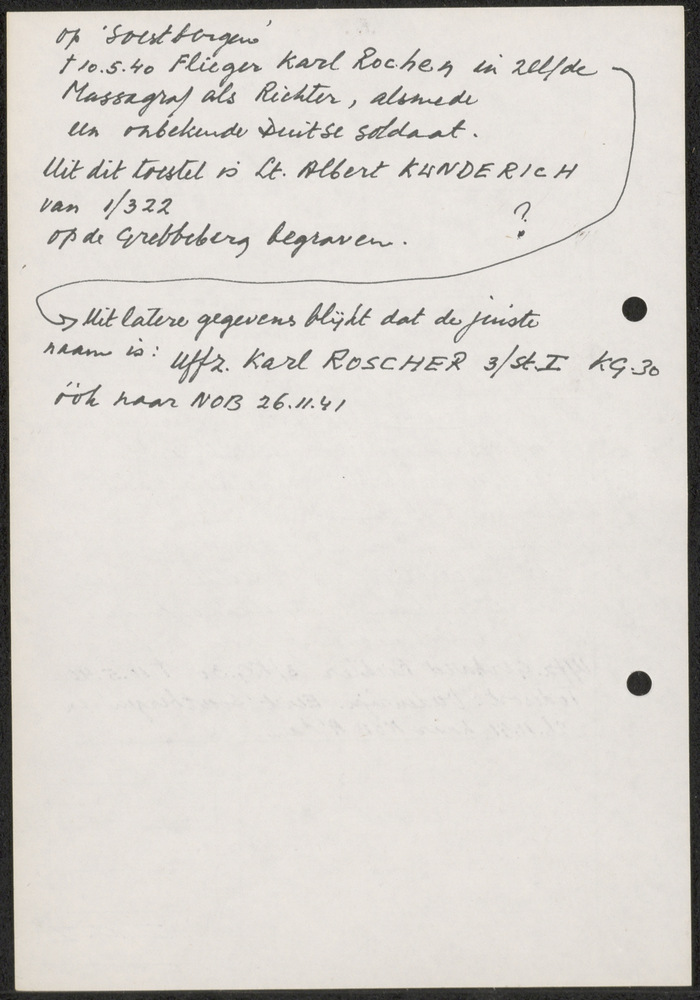 op 'Soestbergen'
† 10.5.40 Flieger Karl Rochen in zelfde
Massagraf als Richter, alsmede
een onbekende Duitse soldaat.
Uit dit toestel is Lt. Albert KUNDERICH
van 1/322
?
op de Grebbeberg begraven.
Uit latere gegevens blijkt dat de juiste
naam is: Uffz. Karl ROSCHER 3/St.I KG.30
óók naar NOB 26.11.41